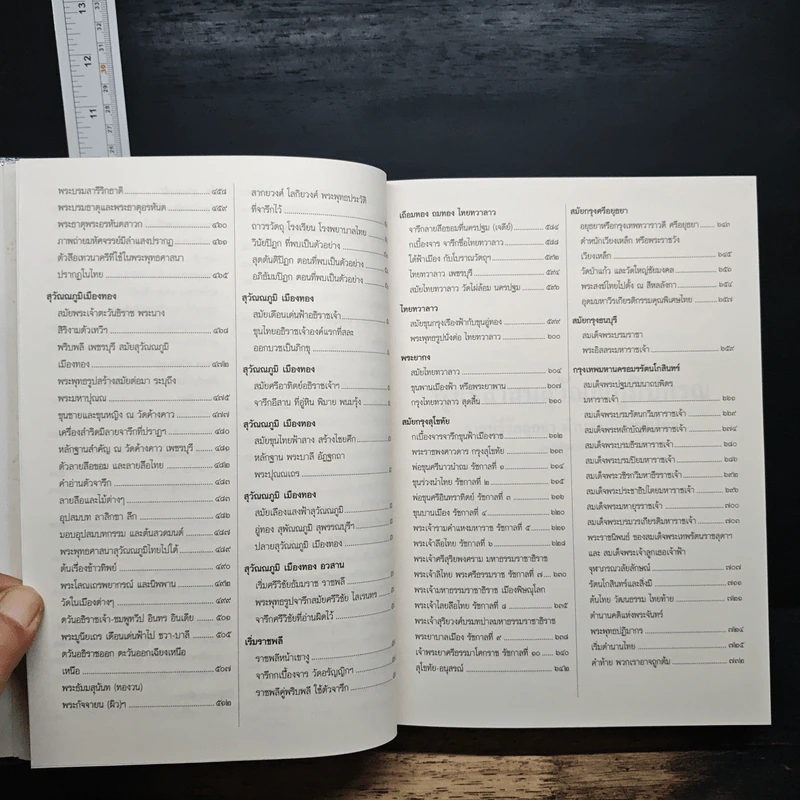 พระบรมสารีริกธาตุ ๔๕๘
พระบรมธาตุและพระธาตุอรหันต ๔๕๙
พระธาตุพระอรหันตสาวก ๔๖๐
ภาพถ่ายมหัศจรรย์มีลำแสงปรากฏ ๔๖๑
ตัวสือเทวนาครีที่ใช้ในพระพุทธศาสนา
ปรากฏในไทย ๔๖๕
สุวัณณภูมิเมืองทอง
สมัยพระเจ้าตะวันอธิราช พระนาง
สิริงามตัวเทวีฯ ๔๖๘
พริบพลี เพชรบุรี สมัยสุวัณณภูมิ
เมืองทอง ๔๗๒
พระพุทธรูปสร้างสมัยต่อมา ระบุถึง
พระมหาปุณณ ๔๗๕
ขุนชายและขุนหญิง ณ วัดค้างคาว ๔๗๗
เครื่องสำริดมีลายจารึกที่ปรากฏ ๔๘๐
หลักฐานสำคัญ ณ วัดค้างคาว เพชรบุรี ๔๘๑
ตัวลายสือขอม และลายสือไทย ๔๘๒
คำอ่านตัวจารึก ๔๘๓
ลายสือและไม้ต่างๆ ๔๘๓
อุปสมบท ลาสิกขา สึก ๔๘๔
มอบอุปสมบทกรรม และต้นสวดมนต์ ๔๘๗
พระพุทธศาสนาสุวัณณภูมิไทยไปใต้ ๔๘๙
ต้นเรื่องข้าวทิพย์ ๔๙๐
พระโสณเถรพยากรณ์ และนิพพาน ๔๙๒
วัดในเมืองต่างๆ ๔๙๙
ตวันอธิราชเจ้า-ชมพูทวีป อินทร อินเดีย ๕๐๑
พระมูนียเถร เดือนเด่นฟ้าไป ชวา-บาลี ๕๐๕
ตวันอธิราชออก ตะวันออกเฉียงเหนือ
เหนือ ๕๐๗
พระธัมมสุนันท (ทองวน)
พระกัจจายน (ผิว)ฯ ๕๑๒
ลากยวงศ์ โลกิยวงศ์ พระพุทธประวัติ
ที่จารึกไว้
ถาวรวัตถุ โรงเรียน โรงพยาบาลไทย
วินัยปิฎก ที่พบเป็นตัวอย่าง
สุตตันติปิฎก ตอนที่พบเป็นตัวอย่าง
อภิธัมมปิฎก ตอนที่พบเป็นตัวอย่าง
สุวัณณภูมิ เมืองทอง
สมัยเดือนเด่นฟ้าอธิราชเจ้า
ขุนไทยอธิราชเจ้าองค์แรกที่สละ
ออกบวชเป็นภิกขุ
สุวัณณภูมิ เมืองทอง
สมัยศรีอาทิตย์อธิราชเจ้าฯ
จารึกอีสาน ที่อู่หิน พิมาย พนมรุ้ง
สุวัณณภูมิ เมืองทอง
สมัยขุนไทยฟ้าลาง สร้างไชยศึก
หลักฐาน พระบาลี อัฏฐกถา
พระปุณณเถร
สุวัณณภูมิ เมืองทอง
สมัยเลืองแสงฟ้าสุวัณณภูมิ
อู่ทอง สุพัณณภูมิ สุพรรณบุรีฯ
ปลายสุวัณณภูมิ เมืองทอง
สุวัณณภูมิ เมืองทอง อวสาน
เริ่มศรีวิชัยธัมมราช ราชพลี
พระพุทธรูปจารึกสมัยศรีวิชัย ไสเรนทร
จารึกศรีวิชัยที่อ่านผิดไว้
เริ่มราชพลี
ราชพลีหน้าเขางู
จารึกกเบื้องจาร วัดอรัญญิกฯ
ราชพลีคู่พริบพลี ใช้ตัวจารึก
เถือมทอง ถมทอง ไทยทวาลาว
จารึกลายสือขอมที่นครปฐม (เจดีย์) ๕๘๔
กเบื้องจาร จารึกชื่อไทยทวาลาว ๕๘๘
ใต้ฟ้าเมือง กับโบราณวัตถุฯ ๕๙๒
ไทยทวาลาว เพชรบุรี ๕๙๔
สมัยไทยทวาลาว วัดไผ่ล้อม นครปฐม ๕๙๖
ไทยทวาลาว
สมัยขุนกรุงเรืองฟ้ากับขุนอู่ทอง ๕๙๙
พระพุทธรูปนั่งต่อ ไทยทวาลาว ๖๐๐
พระยากง
สมัยไทยทวาลาว ๖๐๔
ขุนพานเมืองฟ้า หรือพระยาพาน ๖๐๗
กรุงไทยทวาลาว สุดสิ้น ๖๑๐
สมัยกรุงสุโขทัย
กเบื้องจารจารึกขุนฟ้าเมืองราช ๖๑๑
พระราชพงศาวดาร กรุงสุโขทัย ๖๑๓
พ่อขุนศรีนาวนำถม รัชกาลที่ ๑ ๖๑๔
ขุนร่วงนำไทย รัชกาลที่ ๒ ๖๑๕
พ่อขุนศรีอินทราทิตย์ รัชกาลที่ ๓ ๖๑๖
ขุนบานเมือง รัชกาลที่ ๔ ๖๒๐
พระเจ้ารามคำแหงมหาราช รัชกาลที่ ๕ ๖๒๑
พระเจ้าลือไทย รัชกาลที่ ๖ ๖๒๘
พระเจ้าศรีสุริยพงศราม มหาธรรมราชาธิราช
พระเจ้าลิไทย พระศรีธรรมราช รัชกาลที่ ๗ ๖๓๐
พระเจ้ามหาธรรมราชาธิราช เมืองพิษณุโลก
พระเจ้าไสยลือไทย รัชกาลที่ ๘ ๖๓๕
พระเจ้าสุริยวงศ์บรมทปาลมหาธรรมราชาธิราช
พระยาบาลเมือง รัชกาลที่ ๙ ๖๓๘
เจ้าพระยาศรีธรรมาโศกราช รัชกาลที่ ๑๐ ๖๔๐
สุโขทัย-อนุสรณ์ ๖๔๒
สมัยกรุงศรีอยุธยา
อยุธยาหรือกรุงเทพทวาราวดี ศรีอยุธยา ๖๔๓
ตำหนักเวียงเหล็ก หรือพระราชวัง
เวียงเหล็ก ๖๔๕
วัดป่าแก้ว และวัดใหญ่ชัยมงคล ๖๕๒
พระสงฆ์ไทยไปตั้ง ณ สีหลลังกา ๖๕๔
อุดมมหาวีรเกียรติกรรมคุณพิเศษไทย ๖๕๗
สมัยกรุงธนบุรี
สมเด็จพระบรมราชา
พระอิสสระมหาราชเจ้า ๖๕๙
กรุงเทพมหานครอมรรัตนโกสินทร์
สมเด็จพระปฐมบรมนาถบพิตร
มหาราชเจ้า ๖๖๑
สมเด็จพระบรมรัตนกวีมหาราชเจ้า ๖๖๙
สมเด็จพระหลักบัณฑิตมหาราชเจ้า ๖๗๔
สมเด็จพระบรมธีรมหาราชเจ้า ๖๘๐
สมเด็จพระบรมปิยมหาราชเจ้า ๖๘๔
สมเด็จพระวชิรกวีมหาธีรราชเจ้า ๖๙๒
สมเด็จพระประชาธิปไตยมหาราชเจ้า ๖๙๖
สมเด็จพระมหายุรราชเจ้า ๗๐๐
สมเด็จพระบรมวรเกียรติมหาราชเจ้า ๗๐๓
พระราชนิพนธ์ ของสมเด็จพระเทพรัตนราชสุดาฯ
และ สมเด็จพระเจ้าลูกเธอเจ้าฟ้า
จุฬาภรณวลัยลักษณ์ ๗๐๗
รัตนโกสินทร์และสิ่งมี ๗๑๑
ต้นไทย วัฒนธรรม ไทยท้าย ๗๒๑
ตำนานคติแห่งพระจันทร์
พระพุทธปฏิมากร ๗๒๔
เริ่มตำนานไทย ๗๒๕
คำท้าย พวกเราอาจถูกต้ม ๗๗๒
13
12
11